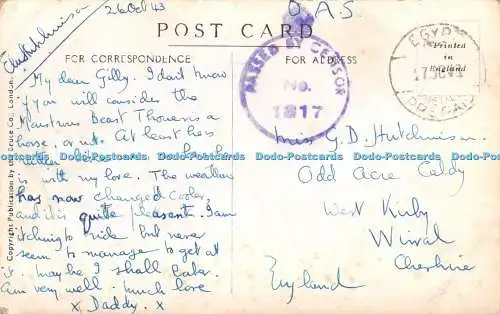 26 Oct 43
O. A. S.
POST CARD
FOR CORRESPONDENCE
FOR ADDRESS
Printed
in
England
EGYPT
PASSED BY CENSOR
No.
1817
My dear Gilly. I don't know
if you will consider the
Monstrous Beast Thoueris a
horse, or not. At least he's
is with my love. The weather
has now changed Cooler,
and it is quite pleasant. I am
itching to ride but never
seem to manage to get at
it. Maybe I shall later.
Am very well. Much love
x Daddy. x
Miss G. D. Hutchinson
Odd Acre Caldy
West Kirby
Wirral
Cheshire
England
Dodo-Postcards Dodo-Postcards Dodo-Postcards Dodo-Postcards Dodo-Postcards